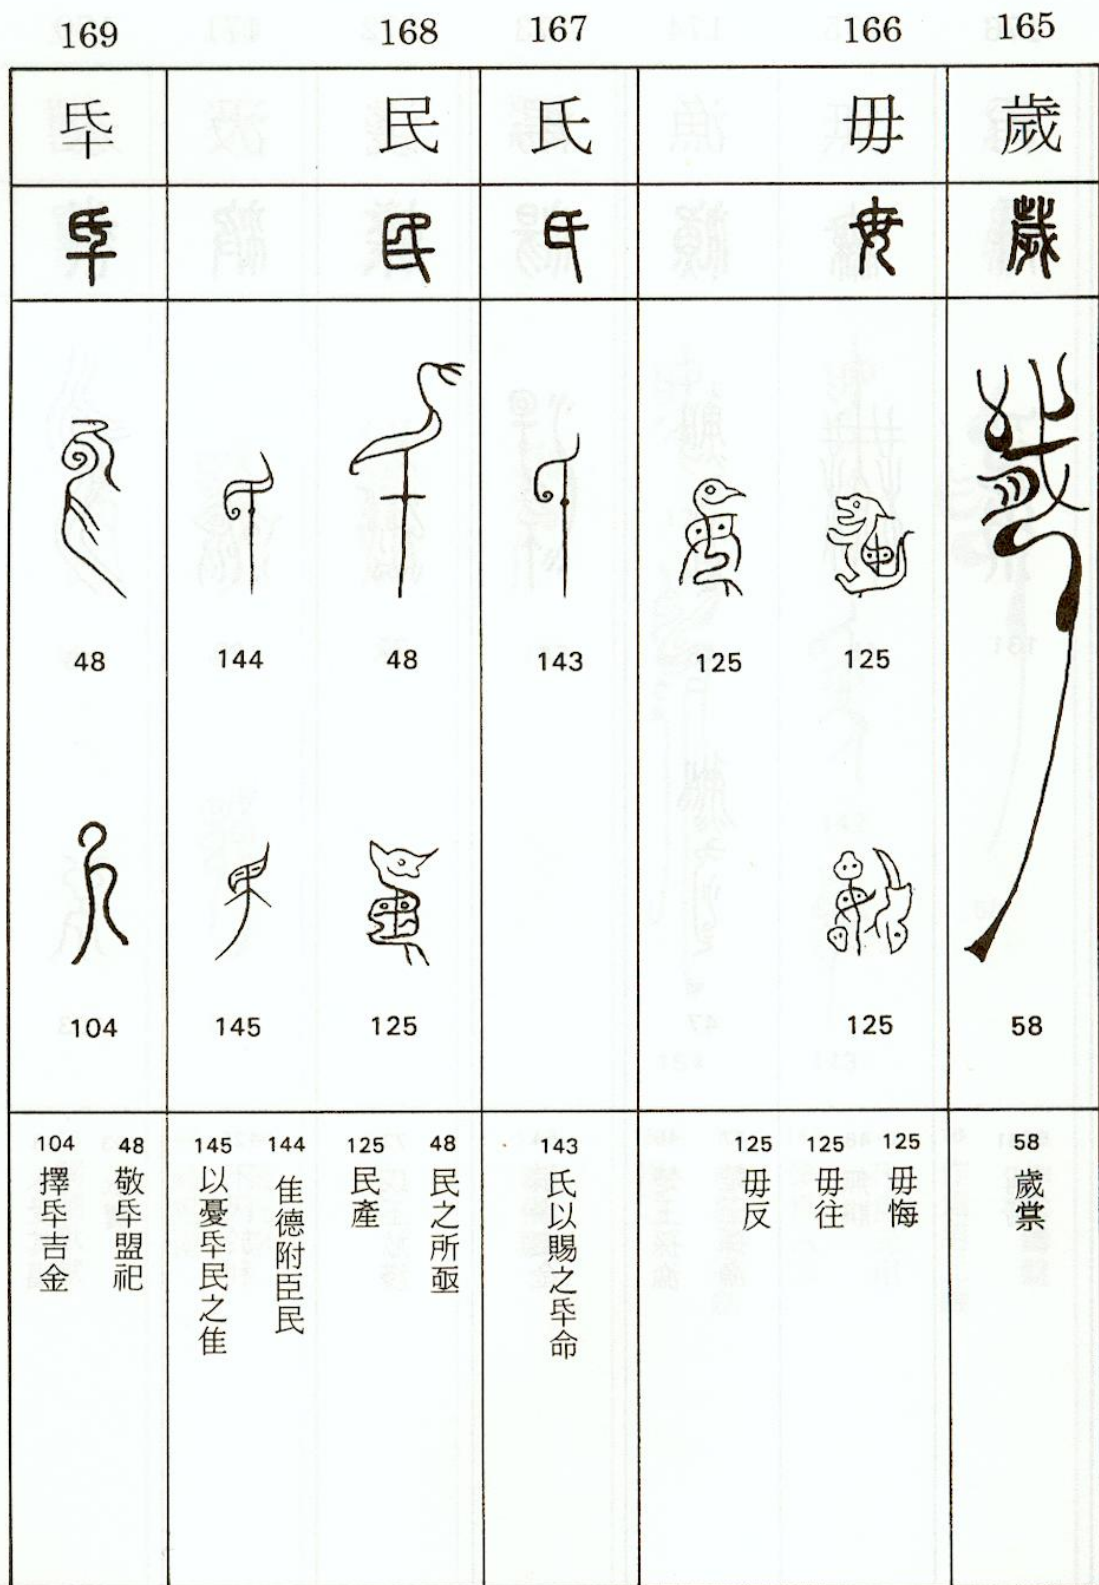 165
歲
歲
58
58 歲
166
毋
毋
125
125
125
125 毋悔
125 毋往
125 毋反
167
氏
氏
143
143 氏以賜之氒命
168
民
民
48
125
144
145
48 民之所亟
125 民產
144 隹德附臣民
145 以憂氒民之隹
169
氒
氒
48
104
48 敬氒盟祀
104 擇氒吉金